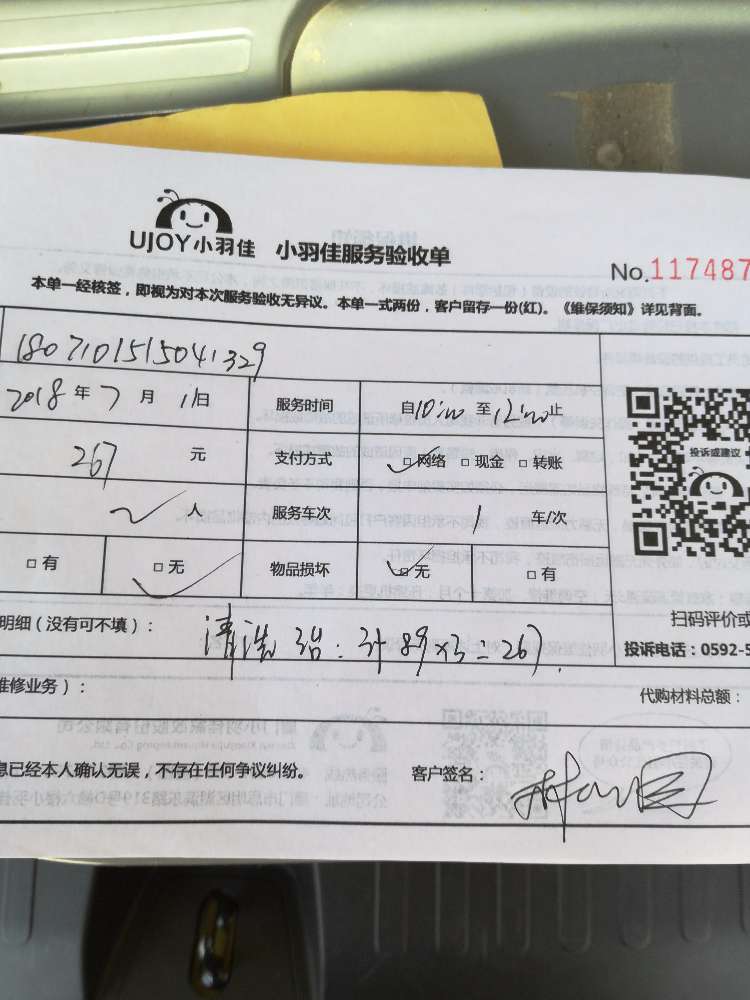 UJOY小羽佳 小羽佳服务验收单
No.117487
本单一经核签，即视为对本次服务验收无异议。本单一式两份，客户留存一份(红)。《维保须知》详见背面。
1807101515041329
2018年7月11日 服务时间 自10:00至12:00止
267元 支付方式 □网络 □现金 □转账
2人 服务车次 1车/次
□有 □无 物品损坏 □无 □有
投诉或建议
扫码评价或
明细（没有可不填）： 清洗 3台：计89×3=267.
投诉电话：0592-5
维修业务）： 代购材料总额：
息已经本人确认无误，不存在任何争议纠纷。 客户签名：